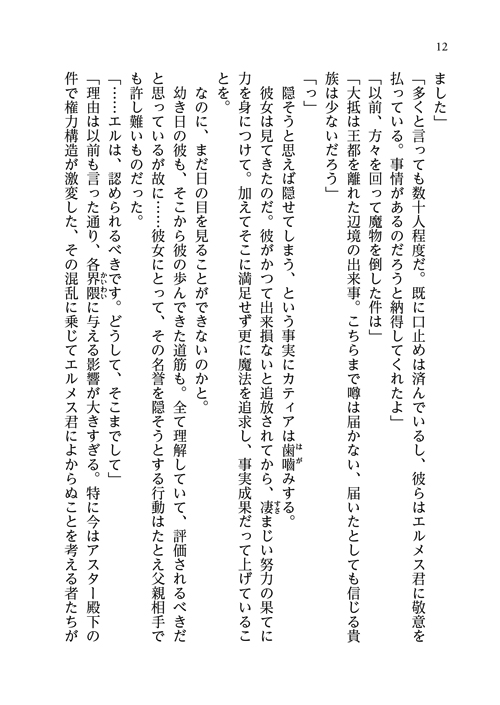 12
ました」
「多くと言っても数十人程度だ。既に口止めは済んでいるし、彼らはエルメス君に敬意を
払っている。事情があるのだろうと納得してくれたよ」
「以前、方々を回って魔物を倒した件は」
「大抵は王都を離れた辺境の出来事。こちらまで噂は届かない、届いたとしても信じる貴
族は少ないだろう」
「っ」
隠そうと思えば隠せてしまう、という事実にカティアは歯噛みする。
彼女は見てきたのだ。彼がかつて出来損ないと追放されてから、凄まじい努力の果てに
力を身につけて。加えてそこに満足せず更に魔法を追求し、事実成果だって上げているこ
とを。
なのに、まだ日の目を見ることができないのかと。
幼き日の彼も、そこから彼の歩んできた道筋も。全て理解していて、評価されるべきだ
と思っているが故に……彼女にとって、その名誉を隠そうとする行動はたとえ父親相手で
も許し難いものだった。
「……エルは、認められるべきです。どうして、そこまでして」
「理由は以前も言った通り、各界隈に与える影響が大きすぎる。特に今はアスター殿下の
件で権力構造が激変した、その混乱に乗じてエルメス君によからぬことを考える者たちが